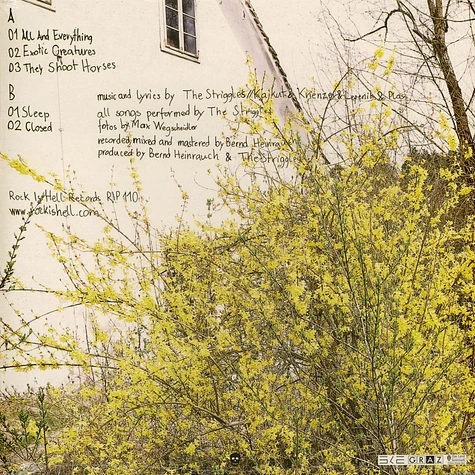 A
01 All And Everything
02 Exotic Creatures
03 They Shoot Horses
B
01 Sleep
02 Closed
music and lyrics by The Striggles//Kajkut &
all songs performed by The Striggles
fotos by Max Wegscheidler
recorded, mixed and mastered by Bernd Heinrauch
produced by Bernd Heinrauch & The Striggles
Rock Is Hell Records RIP 110
www.rockishell.com
SKE GRAZ